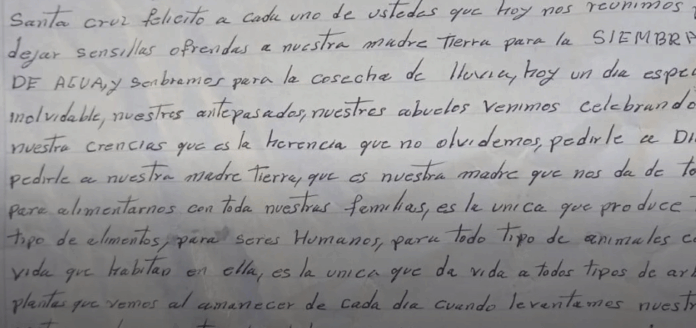 Santa cruz felicito a cada uno de ustedes que hoy nos reunimos
dejar sensillas ofrendas a nuestra madre Tierra para la SIEMBRA
DE AGUA, y sembramos para la cosecha de lluvia, hoy un dia espec
inolvidable, nuestros antepasados, nuestros abuelos venimos celebrando
nuestra crencias que es la herencia que no olvidemos, pedirle a Di
pedirle a nuestra madre Tierra, que es nuestra madre que nos da de to
para alimentarnos con toda nuestras familias, es la unica que produce
tipo de alimentos, para seres Humanos, para Todo Tipo de animales c
vida que habitan en ella, es la unica que da vida a todos tipos de arb
plantas que vemos al amanecer de cada dia cuando levantamos nuestr